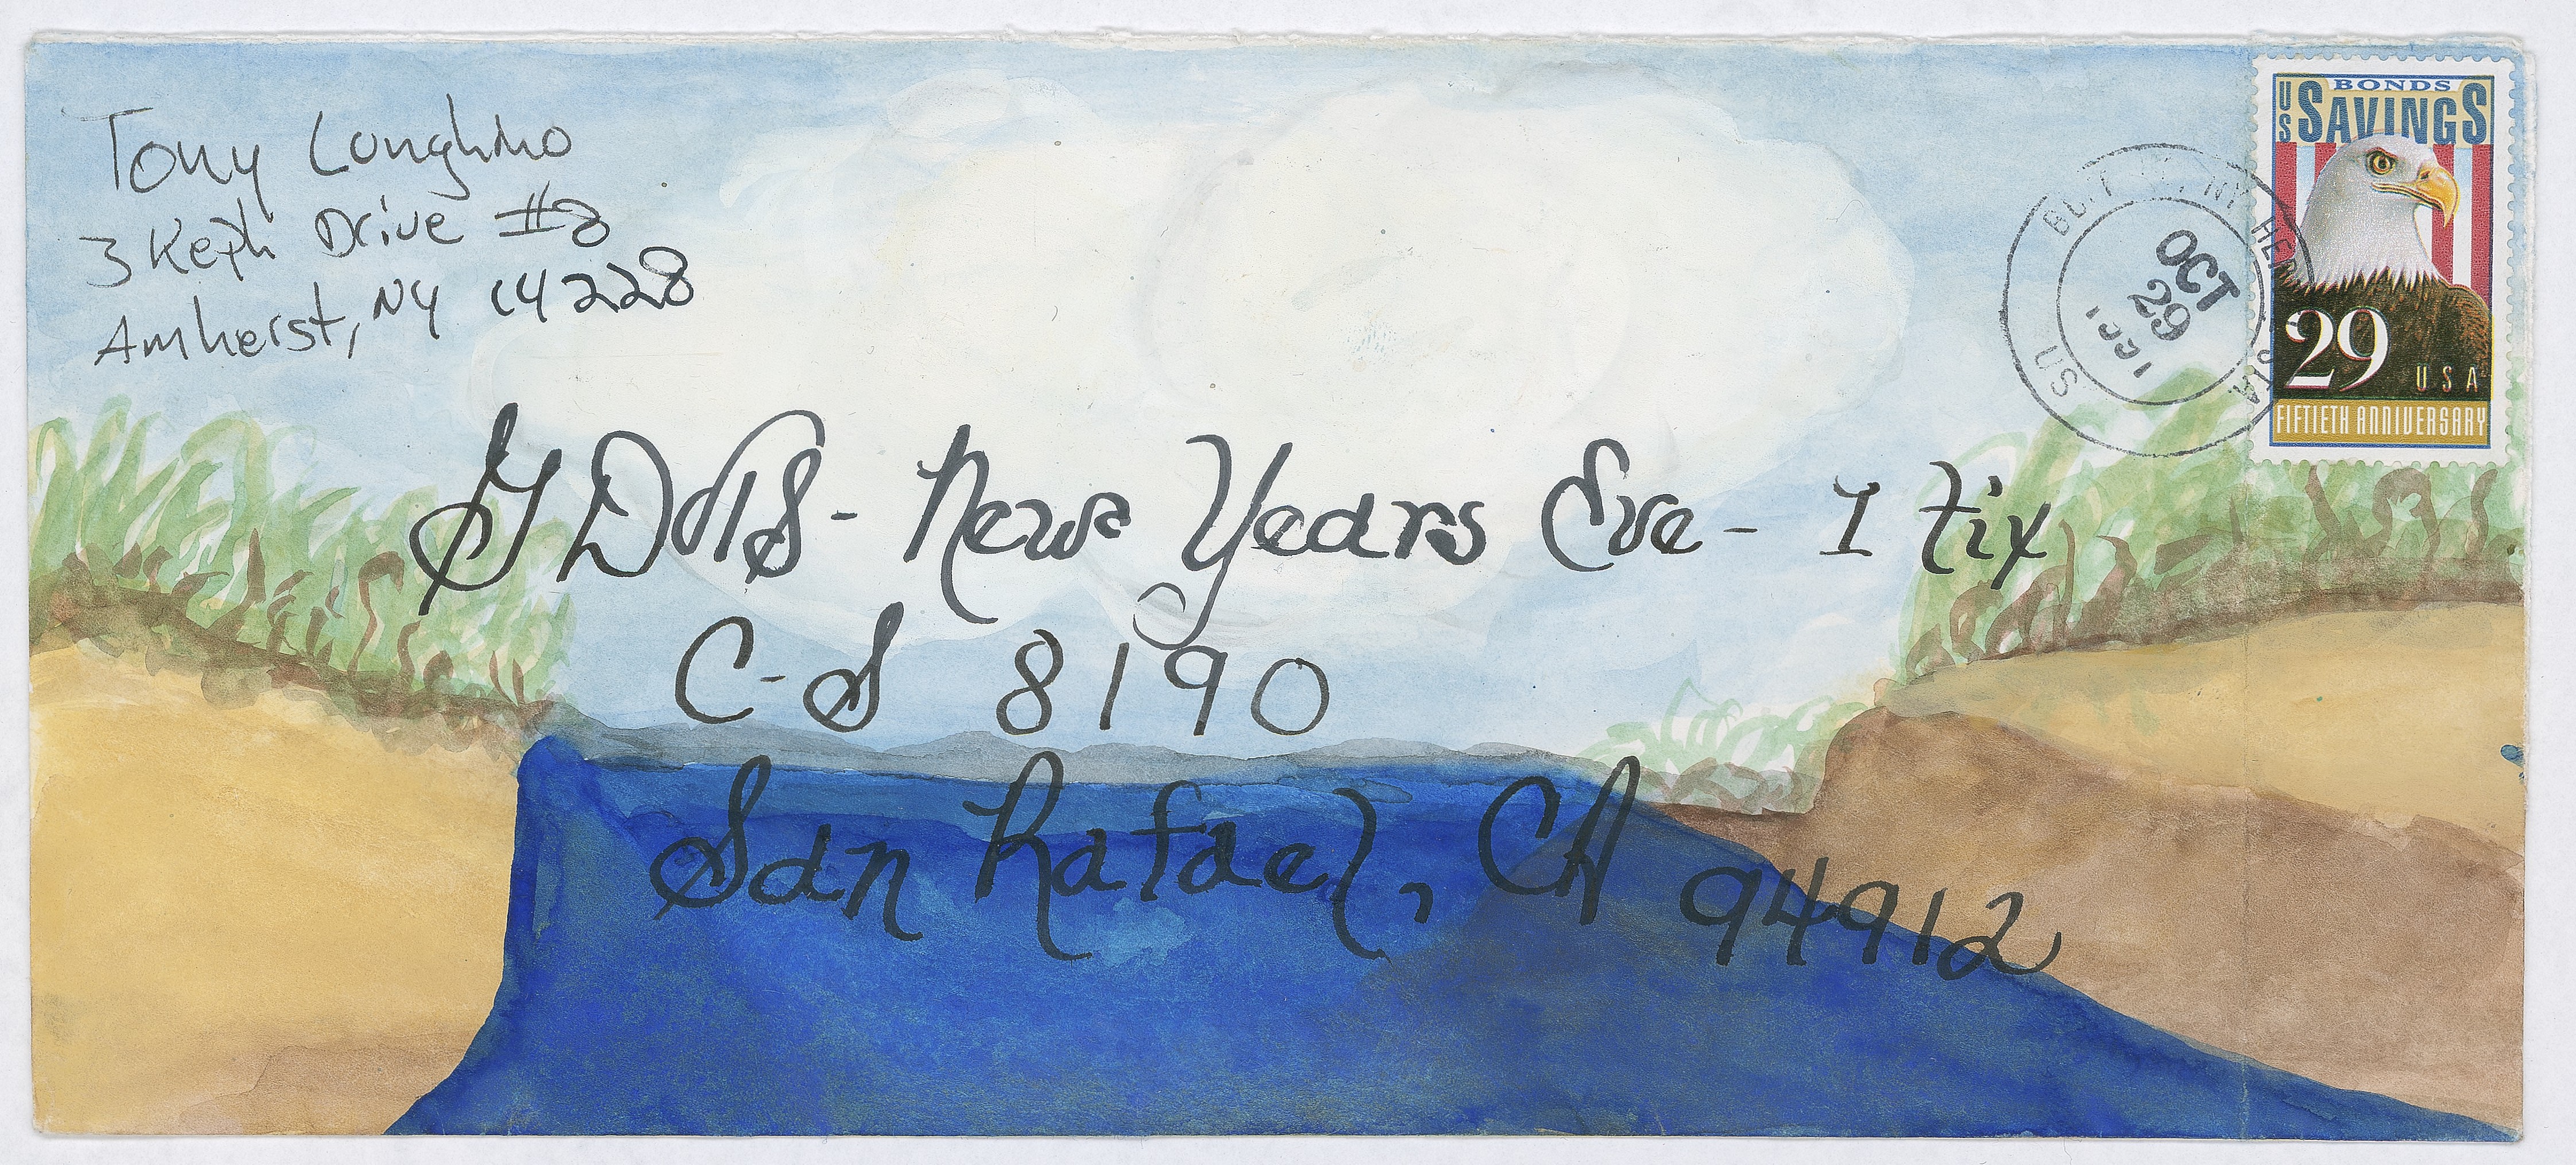 Tony Longhino
3 Keph Drive #8
Amherst, NY 14228
US BONDS
SAVINGS
29 USA
FIFTIETH ANNIVERSARY
OCT
29
1991
US
NY
STA
GDTS - New Years Eve - 1 tix
C-S 8190
San Rafael, CA 94912